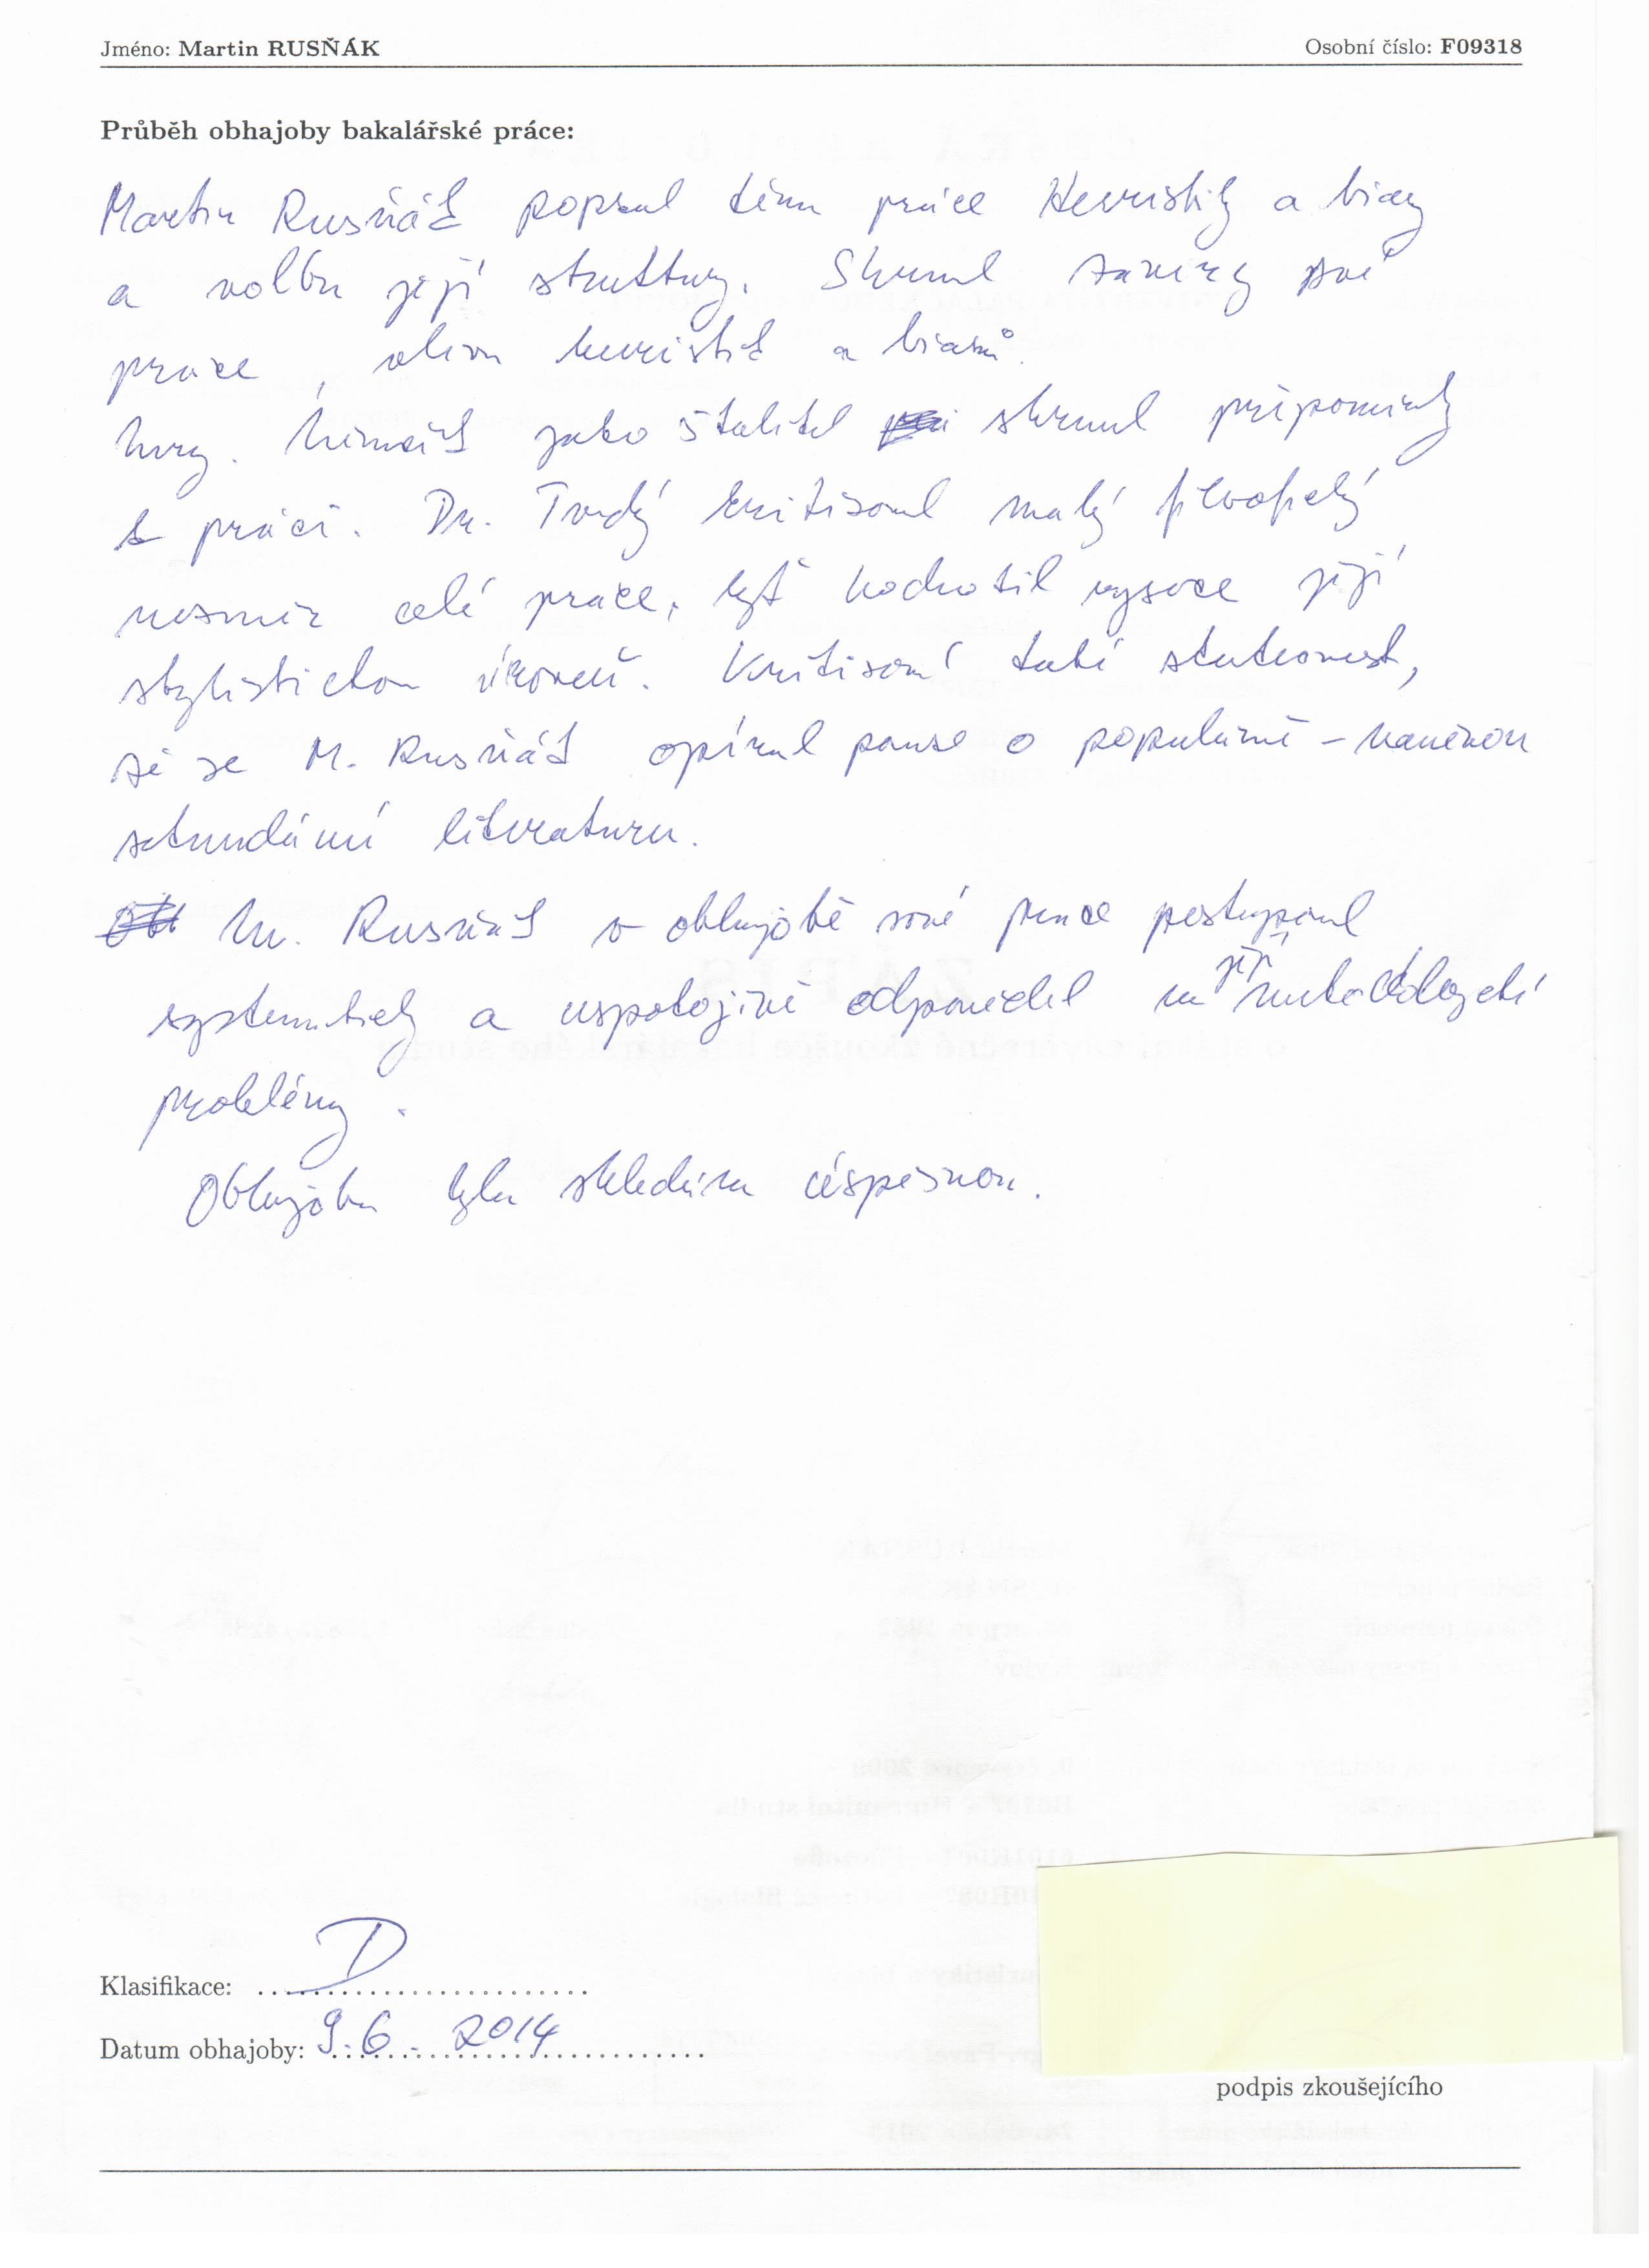 Jméno: Martin RUSŇÁK Osobní číslo: F09318
Průběh obhajoby bakalářské práce:
Martin Rusňák popsal téma práce Heuristiky a biasy
a volbu její struktury. Shrnul závěry své
práce, vlivu heuristik a biasů.
jako školitel shrnul připomínky
k práci. Dr. Tvrdý kritizoval malý filosofický
rozměr celé práce, byť hodnotil vysoce její
stylistickou úroveň. Kritizoval také skutečnost,
že se M. Rusňák opíral pouze o populárně-naučnou
sekundární literaturu.
M. Rusňák v obhajobě své práce postupoval
systematicky a uspokojivě odpověděl na její metodologické
problémy.
Obhajoba byla shledána úspěšnou.
Klasifikace: D
Datum obhajoby: 9.6. 2014
podpis zkoušejícího